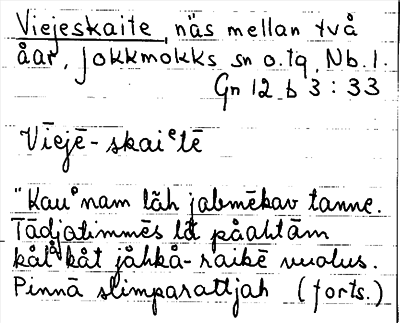 Viejeskaite, näs mellan två
åar, Jokkmokks sn o. tg, Nb. l.
Gn 12 b 3 : 33
Viejē-skaiᵉtē
"Kauᵒnam lāh jabmēkav tanne.
Tādjatimmēs låt påahtām
kåtᵃkåt jåhkå-raikē vuolus.
Pinnā slimparattjah (forts.)